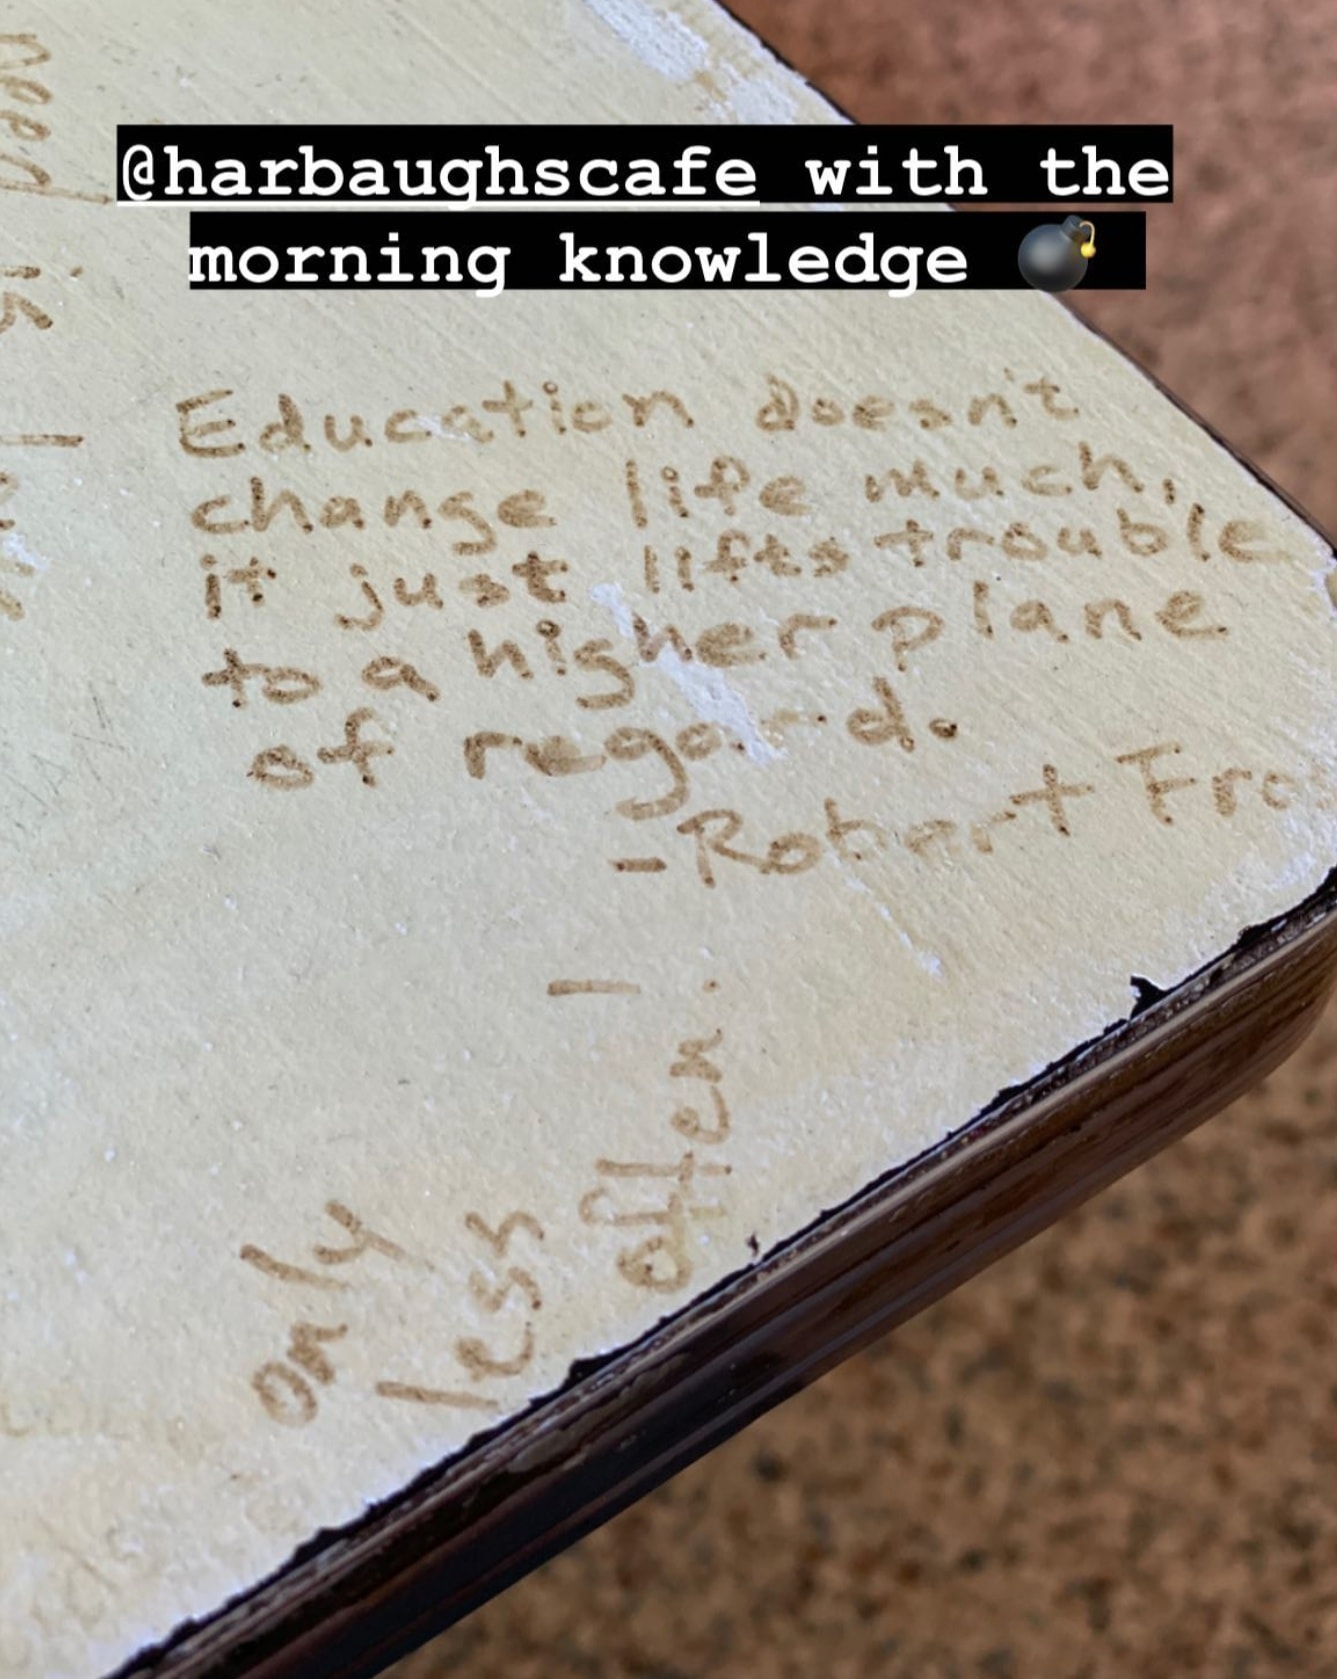 @harbaughscafe with the
morning knowledge 💣
Education doesn't
change life much,
it just lifts trouble
to a higher plane
of regard.
- Robert Fros
only
less
often.